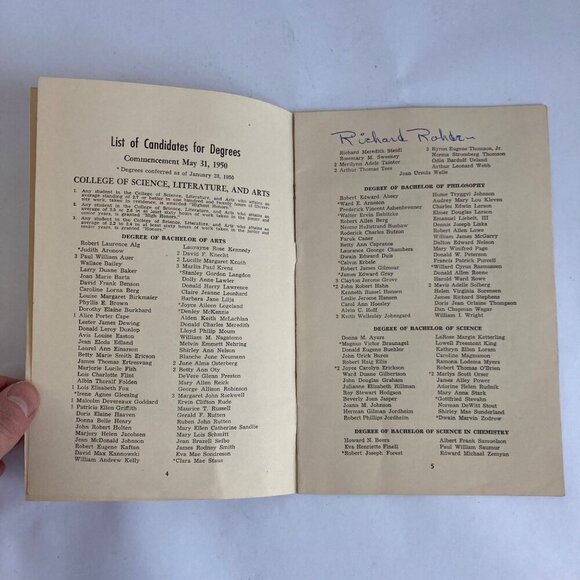 List of Candidates for Degrees
Commencement May 31, 1950
* Degrees conferred as of January 28, 1950
COLLEGE OF SCIENCE, LITERATURE, AND ARTS
DEGREE OF BACHELOR OF ARTS
Robert Laurence Alg
*Judith Aronow
3 Paul William Auer
Wallace Bailey
Larry Duane Baker
Joan Marie Barta
David Frank Benson
Caroline Lorna Berg
Louise Margaret Birkmaier
Phyllis E. Brown
Dorothy Elaine Burkhard
1 Alice Porter Cape
Lester James Dewing
Donald Leroy Dunlop
Avis Louise Easton
Jean Eloda Edlund
Laurel Ann Elmstrom
Betty Marie Smith Ericson
James Thomas Ertresvaag
Marjorie Lucile Fish
Lois Charlotte Flint
Albin Thorall Folden
1 Lois Elizabeth Fox
*Irene Agnes Giessing
2 Malcolm Devereaux Goddard
1 Patricia Ellen Griffith
Doris Elaine Haaven
Donna Belle Henry
John Robert Holten
Marjory Helen Jacobsen
Jean McDonald Johnson
Robert Eugene Kaftan
David Max Kannowski
William Andrew Kelly
Laurayne Rose Kennedy
2 David F. Knecht
2 Lucille Margaret Knuth
3 Marlin Paul Krenz
*Stanley Gordon Langdon
Dolly Anne Lawler
Donald Harry Lawrence
Claire Jeanne Leonhard
Barbara Jane Lilja
*Joyce Aileen Logeland
*Denley McKenzie
Alden Keith McLachlan
Donald Charles Meredith
Lloyd Philip Moum
William M. Nagatomo
Melvin Bennett Nehring
Shirley Ann Nelson
Blanche June Neumann
2 June Alma Osterberg
2 Betty Ann Oty
DeVere Glenn Preston
Mary Allen Reick
George Allison Robson
3 Margaret John Rockwell
Ervin Clifton Rude
Maurice T. Russell
Gerald F. Rutten
Ruben John Rutten
Mary Ellen Catherine Sandlie
Mary Lois Schmitt
Jean Brazell Seibo
James Rodney Smith
Eva Mae Sondreson
*Clara Mae Staus
4
Richard Rohde
Richard Meredith Steidl
Rosemary M. Sweeney
2 Merilynn Adele Tainter
2 Arthur Thomas Tees
3 Byron Eugene Thomson, Jr.
Norma Stromberg Thomson
Odin Bardolf Ueland
Arthur Leonard Webb
Jean Ursula Welle
DEGREE OF BACHELOR OF PHILOSOPHY
Robert Edward Absey
*Ward E. Arneson
Frederick Vincent Aschenbrener
*Walter Ervin Babitzke
Robert Allen Berg
Neomo Hullstrand Bunbow
Roderick Charles Button
Faruk Caner
Betty Ann Caprance
Laurance George Chambers
Dwain Edward Duis
*Calvin Erbele
Robert James Gilmour
*James Edward Gray
3 Clayton Jerome Grove
*2 John Robert Hahn
Kenneth Russel Hansen
Leslie Jerome Hansen
Carol Ann Hoesley
Alvin C. Hoff
2 Keith Wellesley Johngard
Hume Tryggvi Johnson
Audrey Mary Lou Kleven
Charles Edwin Larson
Elmer Douglas Larson
Emanuel Liebelt, III
Dennis Joseph Luke
Robert Allen Lowe
William James McGarry
Dalton Edward Nelson
Mary Winifred Page
Donald W. Peterson
Francis Patrick Purcell
*Willard Cyrus Rasmussen
Donald Allen Ronne
Harold Ward Rowe
2 Mavis Adelle Solberg
Helen Virginia Sorensen
James Richard Stephens
Doris Jean Orlaine Thompson
Dan Chapman Wager
William L. Wright
DEGREE OF BACHELOR OF SCIENCE
Donna M. Ayers
*Magnus Victor Braungadt
Donald Eugene Buehler
John Urick Bures
Robert Haig Ellis
*2 Joyce Carolyn Erickson
Ward Duane Gilbertson
John Douglas Graham
Julianne Elizabeth Hillman
Roy Stewart Hodgson
Beverly Joan Jasper
Joann M. Johnson
Herman Gilman Jordheim
Robert Phillips Jordheim
LaRose Margie Ketterling
Lowell Freemont King
Kathryn Ellen Loram
Caroline Magnusson
Ramona Lodema Myers
Robert Thomas O'Brien
*2 Marlys Scott Orser
James Alley Power
Adorine Helen Rudnik
Mary Anna Stark
Gottfried Stevahn
Norman DeWitt Stout
Shirley Mae Sunderland
*Dwain Marvin Zodrow
DEGREE OF BACHELOR OF SCIENCE IN CHEMISTRY
Howard N. Beers
Eva Henriette Finell
*Robert Joseph Forest
Albert Frank Samuelson
Paul William Saumur
Edward Michael Zemyan
5